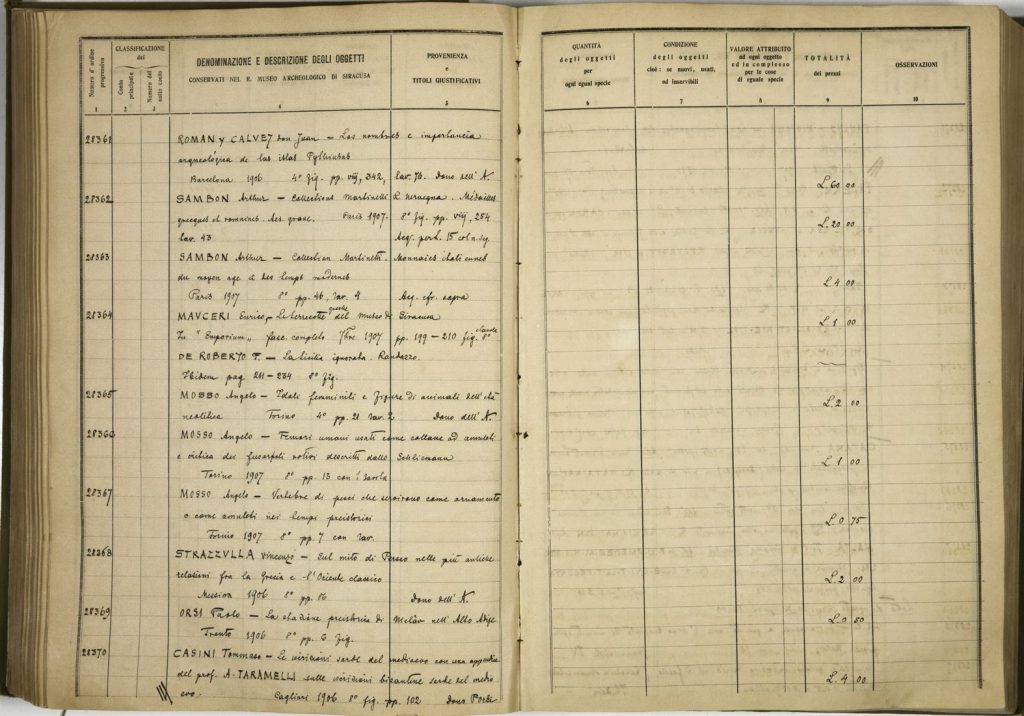 Numero d'ordine progressivo
CLASSIFICAZIONE del
Conto principale
Numero del sotto conto
DENOMINAZIONE E DESCRIZIONE DEGLI OGGETTI
CONSERVATI NEL R. MUSEO ARCHEOLOGICO DI SIRACUSA
PROVENIENZA
e
TITOLI GIUSTIFICATIVI
QUANTITÀ
degli oggetti
per
ogni egual specie
CONDIZIONE
degli oggetti
cioè: se nuovi, usati,
od inservibili
VALORE ATTRIBUITO
ad ogni oggetto
ed in complesso
per le cose
di eguale specie
TOTALITÀ
dei prezzi
OSSERVAZIONI
1 2 3 4 5 6 7 8 9 10
28361 ROMAN y CALVET don Juan — Los nombres e importancia
arqueológica de las islas Pythiusas
Barcelona 1906 4° fig. pp. VIII, 342, tav. 76. Dono dell'A. L. 60 00
28362 SAMBON Arthur — Collections Martinetti & Nervegna. Médailles
grecques et romaines. Aes grave. Paris 1907. 8° fig. pp. VIII, 254 L. 20 00
tav. 43 Acq.
28363 SAMBON Arthur — Collection Martinetti. Monnaies italiennes
du moyen age et des temps modernes L. 4 00
Paris 1907 8° pp. 46, tav. 4 Acq. cfr. sopra
28364 MAUCERI Enrico — Le terrecotte greche del museo di Siracusa L. 1 00
In "Emporium" fasc. completo 7bre 1907 pp. 199 — 210 fig. 8°
DE ROBERTO F. — La Sicilia ignorata. Randazzo.
Ibidem pag 211 — 234 8° fig.
28365 MOSSO Angelo — Idoli femminili e figure di animali dell'età
neolitica Torino 4° pp. 21 tav. 2 Dono dell'A. L. 2 00
28366 MOSSO Angelo — Femori umani usati come collane ad amuleti
e critica dei fusaroli votivi descritti dallo Schliemann L. 1 00
Torino 1907 8° pp. 13 con 1 tavola
28367 MOSSO Angelo — Vertebre di pesci che servirono come ornamento
o come amuleti nei tempi preistorici L. 0 75
Torino 1907 8° pp. 7 con tav.
28368 STRAZZULLA Vincenzo — Sul mito di Perseo nelle più antiche
relazioni fra la Grecia e l'Oriente classico L. 2 00
Messina 1906 8° pp. 86 Dono dell'A.
28369 ORSI Paolo — La stazione preistorica di Melàv nell'Alto Adige L. 0 50
Trento 1906 8° pp. 6 fig.
28370 CASINI Tommaso — Le iscrizioni sarde del medioevo con una appendice
del prof. A. TARAMELLI sulle iscrizioni bizantine sarde del medio L. 4 00
evo. Cagliari 1906 8° fig. pp. 102 Dono